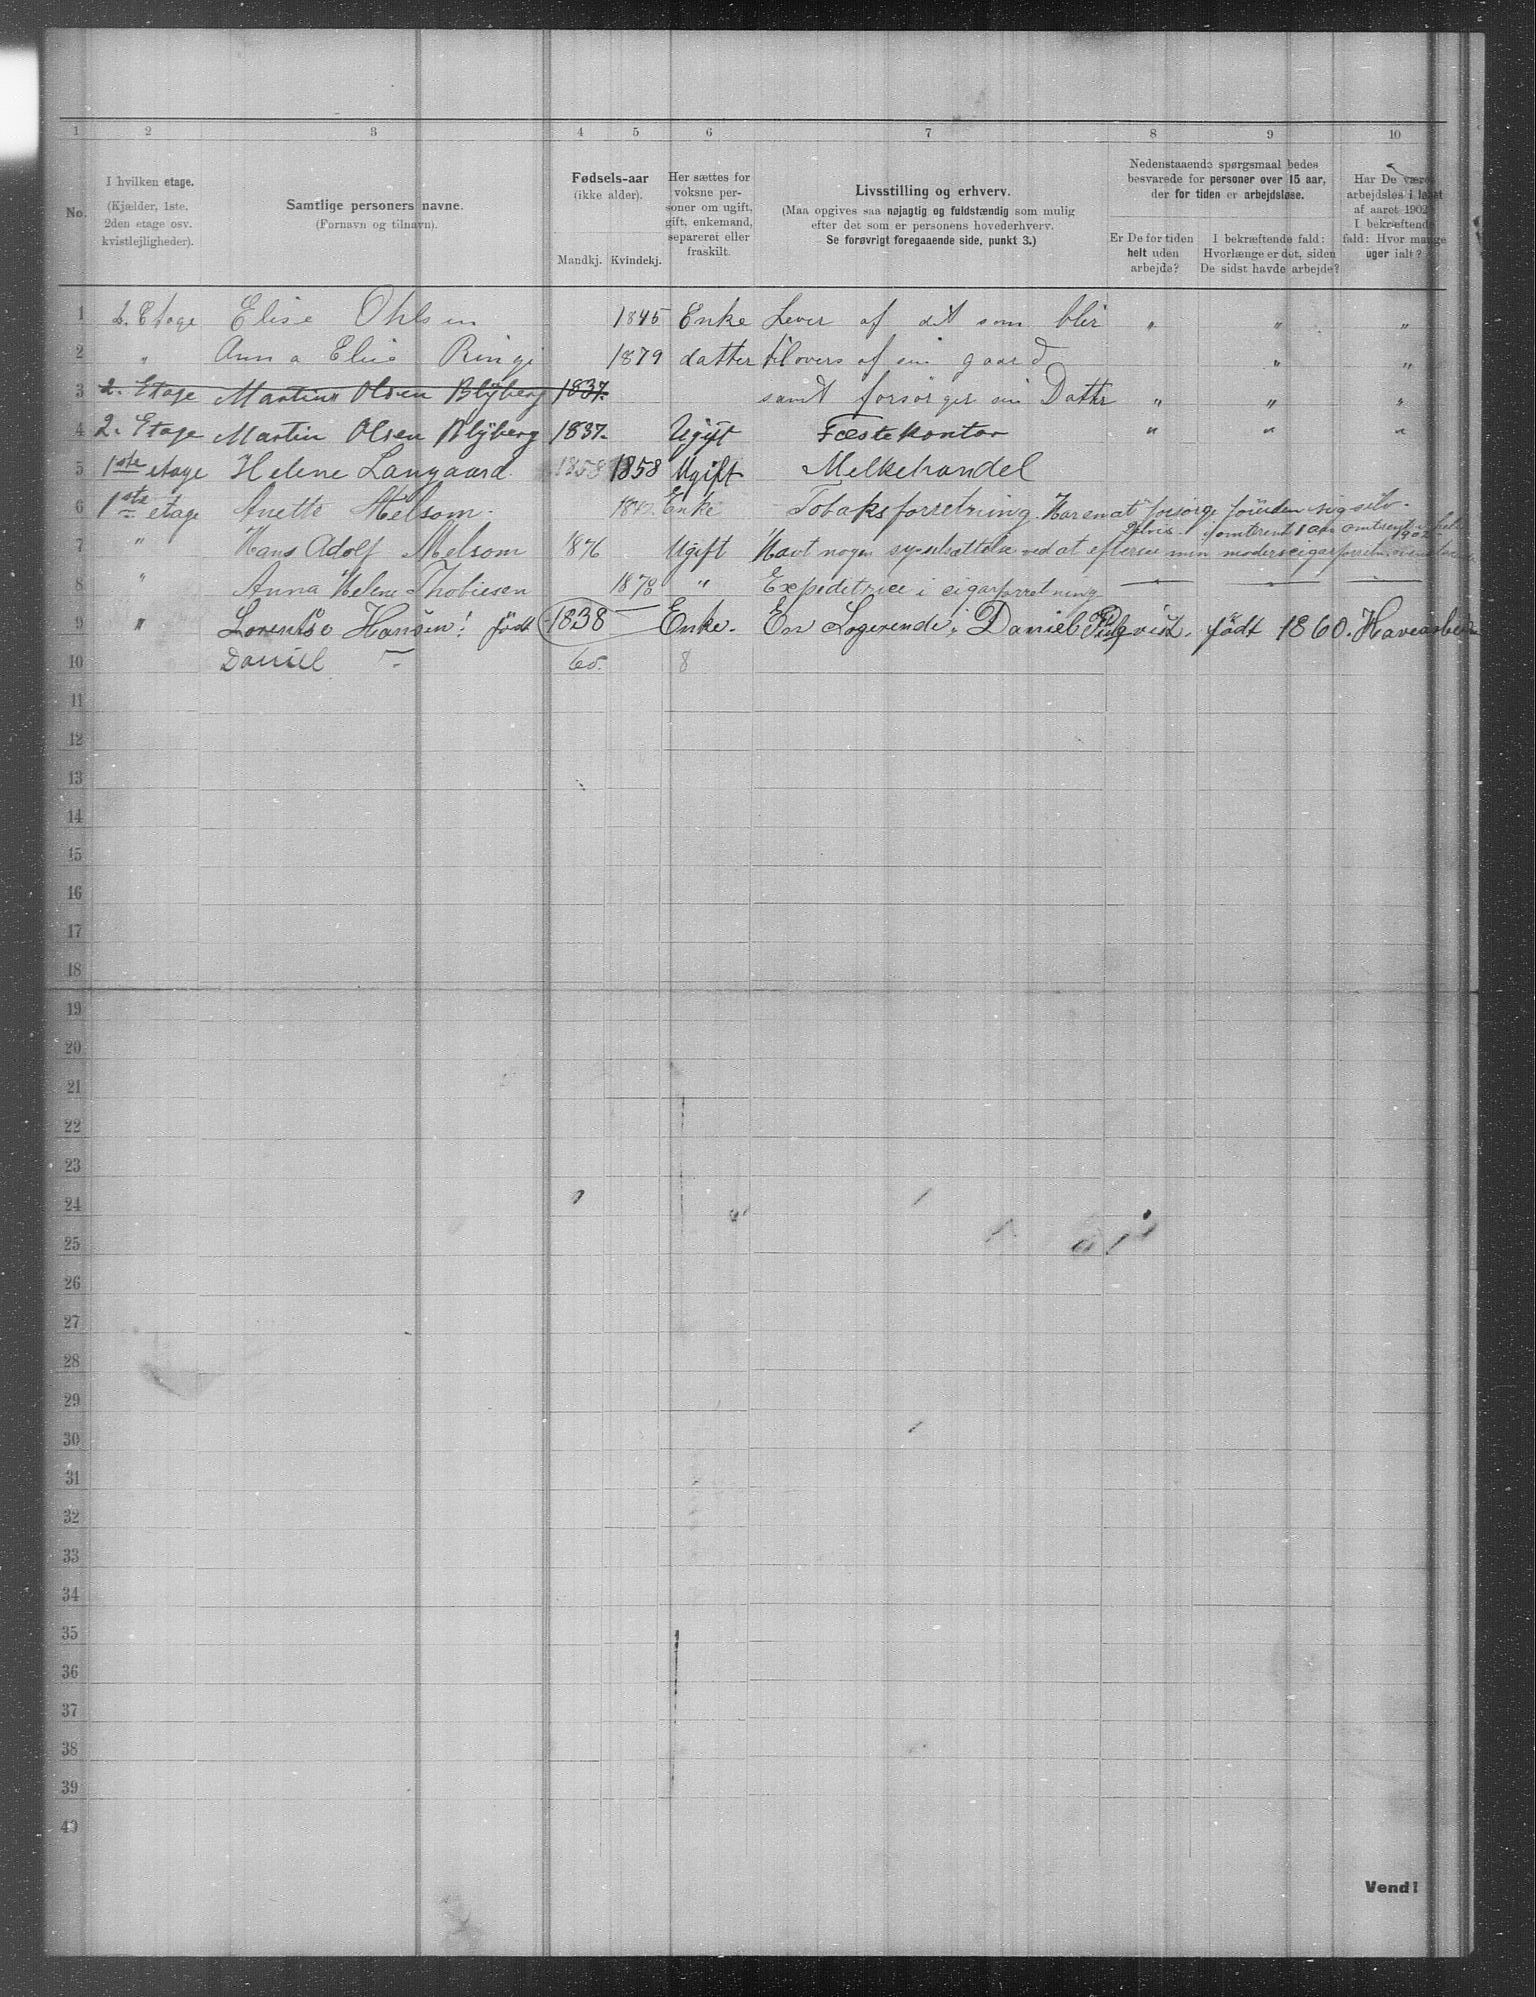 1 2 3 4 5 6 7 8 9 10
No.
I hvilken etage.
(Kjælder, 1ste.
2den etage osv.
kvistlejligheder).
Samtlige personers navne.
(Fornavn og tilnavn).
Fødsels-aar
(ikke alder).
Mandkj. Kvindekj.
Her sættes for
voksne per-
soner om ugift,
gift, enkemand,
separeret eller
fraskilt.
Livsstilling og erhverv.
(Maa opgives saa nøjagtig og fuldstændig som mulig
efter det som er personens hovederhverv.
Se forøvrigt foregaaende side, punkt 3.)
Nedenstaaende spørgsmaal bedes
besvarede for personer over 15 aar,
der for tiden er arbejdsløse.
Er De for tiden
helt uden
arbejde?
I bekræftende fald:
Hvorlænge er det, siden
De sidst havde arbejde?
Har De været
arbejdsløs i løbet
af aaret 1902
I bekræftende
fald: Hvor mange
uger ialt?
1 2. Etage Elise Ohlsen 1845 Enke Lever af det som blir " " "
2 " Anna Elise Ringi 1879 datter tilovers af sin gaard " "
3 2. Etage Martin Olsen Blyberg 1837. samt forsørger sin Datter " " "
4 2. Etage Martin Olsen Blyberg 1837. Ugift Fæstekontor " " "
5 1ste etage Helene Langaard 1858 1858 Ugift Melkehandel
6 1ste etage Anette Melsom. 1842. Enke Tobaksforretning. Har en at forsørge foruden sig selv.
7 " Hans Adolf Melsom 1876 Ugift Havt nogen sysselsættelse ved at efterse min moders cigarforretn. omtrent 1 aar omtrent 1902
8 " Anna Helene Thobiesen 1870 " Expeditrice i cigarforretning
9 " Lorentse Hansen! født 1838 Enke. En Logerende, Daniel født 1860. Havearbeider
10 Daniel 60. 8
11
12
13
14
15
16
17
18
19
20
21
22
23
24
25
26
27
28
29
30
31
32
33
34
35
36
37
38
39
40
Vend!